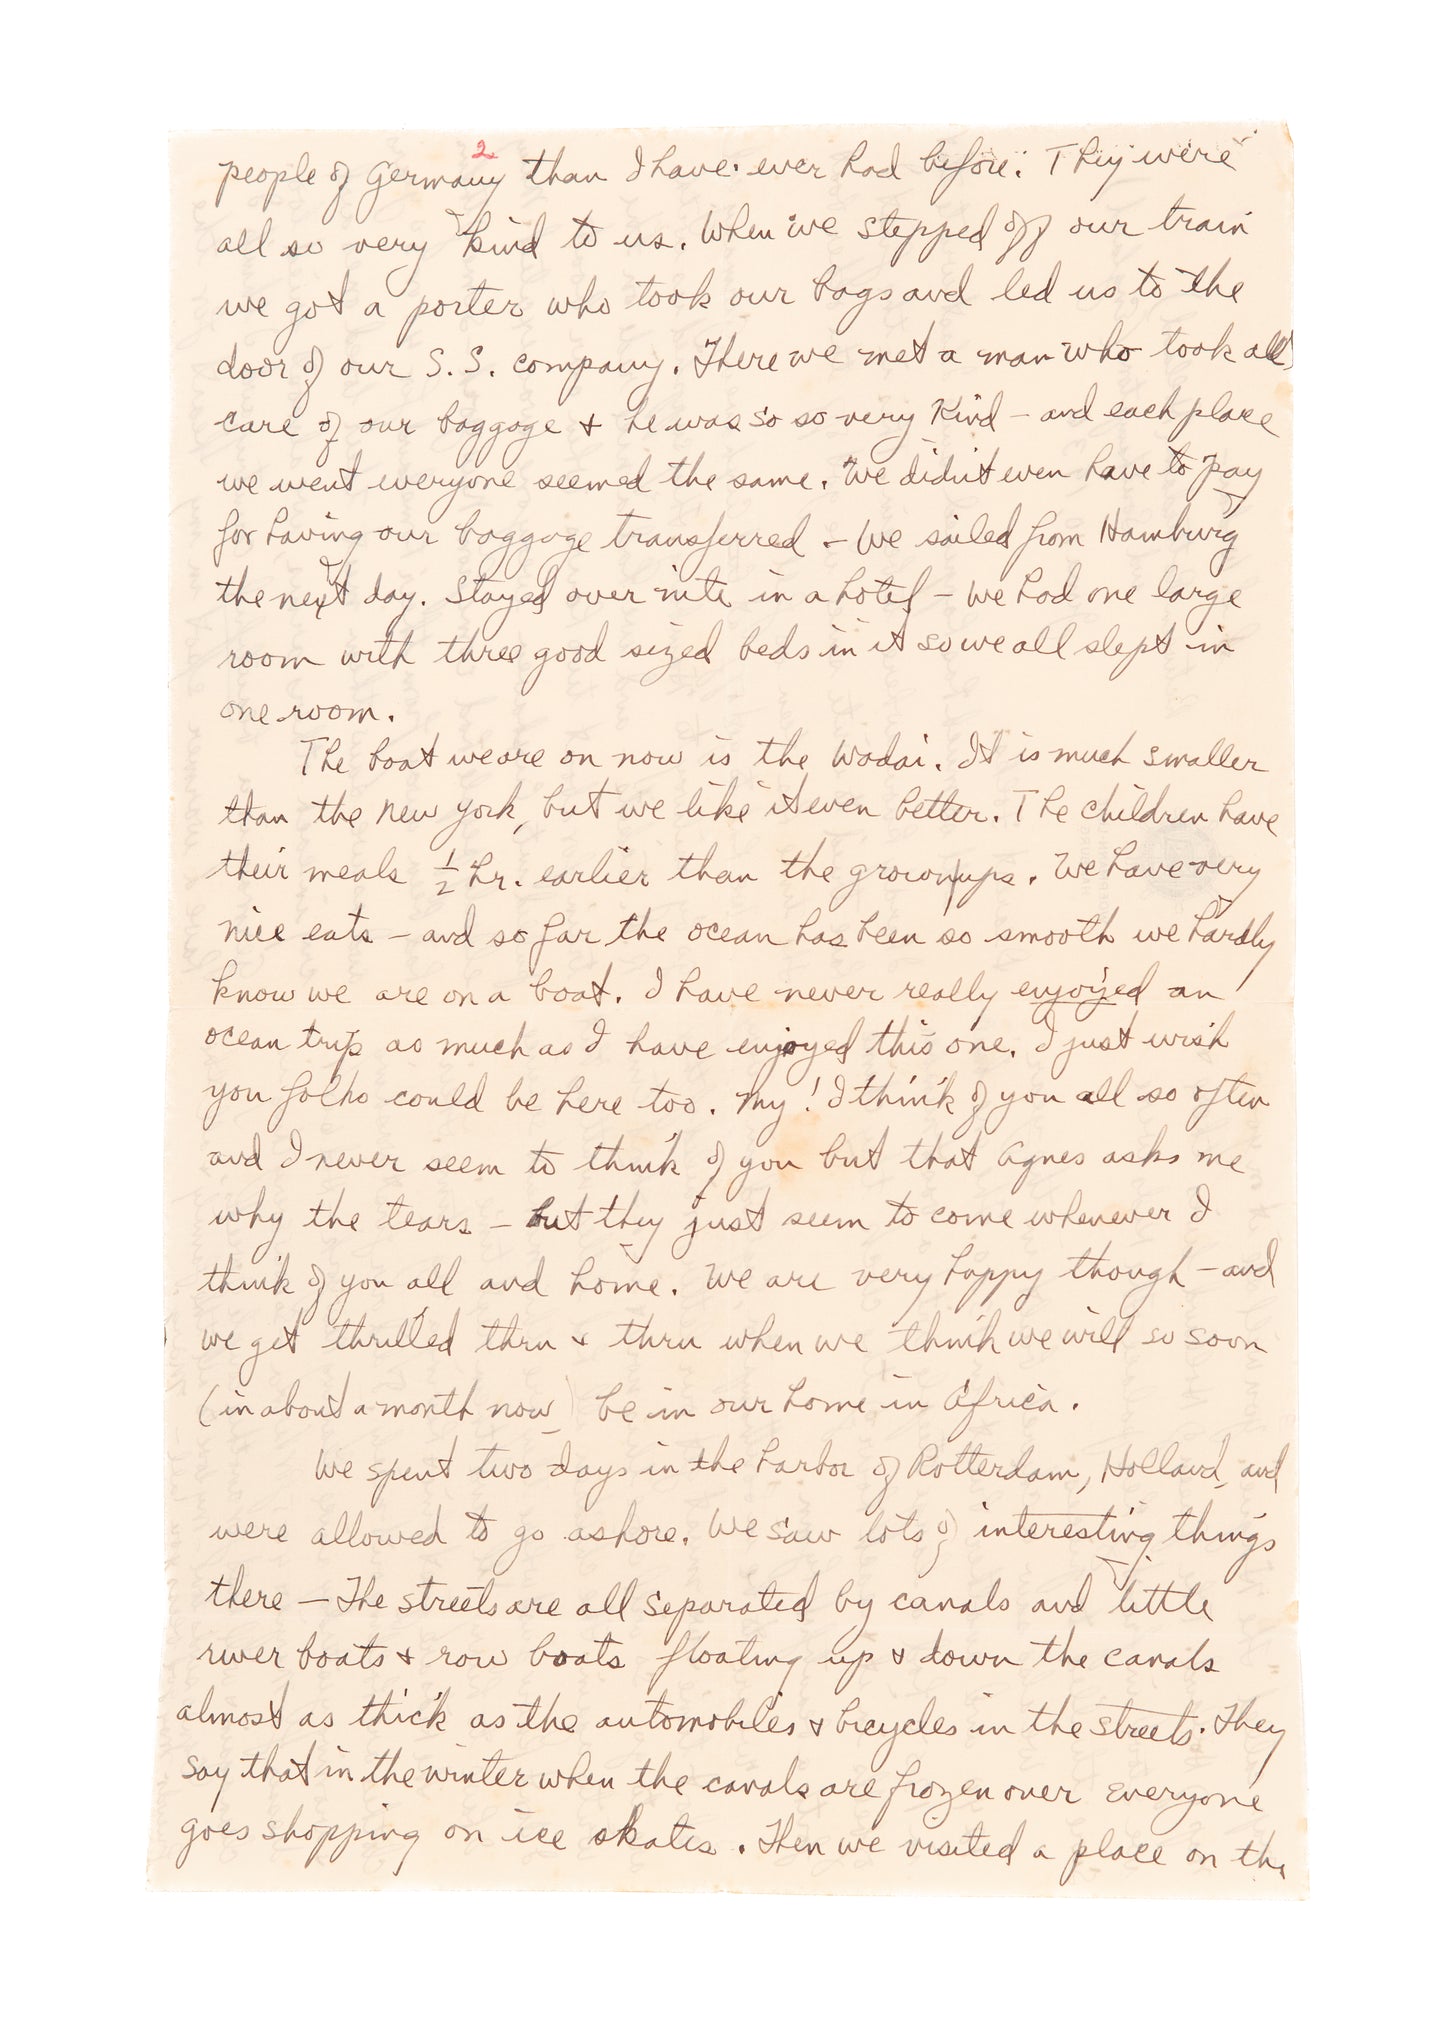 2
people of Germany than I have ever had before. They were
all so very kind to us. When we stepped off our train
we got a porter who took our bags and led us to the
door of our S.S. company. There we met a man who took all
care of our baggage & he was so so very kind – and each place
we went everyone seemed the same. We didn't even have to pay
for having our baggage transferred – We sailed from Hamburg
the next day. Stayed over nite in a hotel – We had one large
room with three good sized beds in it so we all slept in
one room.
The boat we are on now is the Wadai. It is much smaller
than the New York, but we like it even better. The children have
their meals 1/2 hr. earlier than the grownups. We have very
nice eats – and so far the ocean has been so smooth we hardly
know we are on a boat. I have never really enjoyed an
ocean trip as much as I have enjoyed this one. I just wish
you folks could be here too. My! I think of you all so often
and I never seem to think of you but that Agnes asks me
why the tears – but they just seem to come whenever I
think of you all and home. We are very happy though – and
we get thrilled thru & thru when we think we will so soon
(in about a month now) be in our home in Africa.
We spent two days in the harbor of Rotterdam, Holland, and
were allowed to go ashore. We saw lots of interesting things
there – The streets are all separated by canals and little
river boats & row boats floating up & down the canals
almost as thick as the automobiles & bicycles in the streets. They
say that in the winter when the canals are frozen over everyone
goes shopping on ice skates. Then we visited a place on the